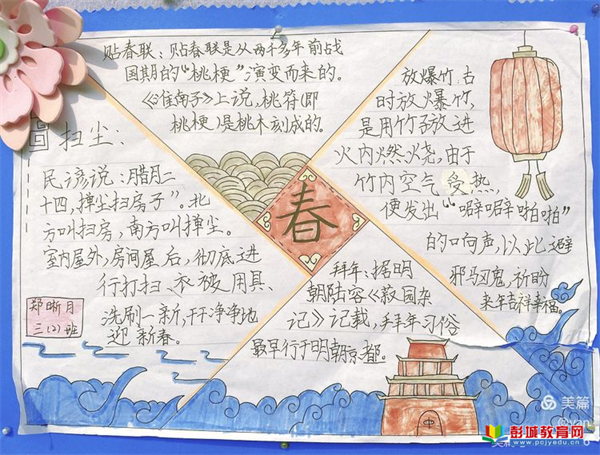 贴春联：贴春联是从两千多年前战
国期的“桃梗”演变而来的。
《淮南子》上说，桃符（即
桃梗）是桃木刻成的。
扫尘：
民谚说：“腊月二
十四，掸尘扫房子”。北
方叫扫房，南方叫掸尘。
室内屋外，房间屋后，彻底进
行打扫、衣被用具、
洗刷一新，干干净净地
迎新春。
郑晰月
三（2）班
春
放爆竹 古
时放爆竹，
是用竹子放进
火内燃烧，由于
竹内空气受热
便发出“噼噼啪啪”
的响声，以此避
邪驱鬼，祈盼
来年吉祥幸福。
拜年：据明
朝陆容《菽园杂
记》记载，拜年习俗
最早行于明朝京都。
美篇
彭城教育网
www.pcjyedu.cn